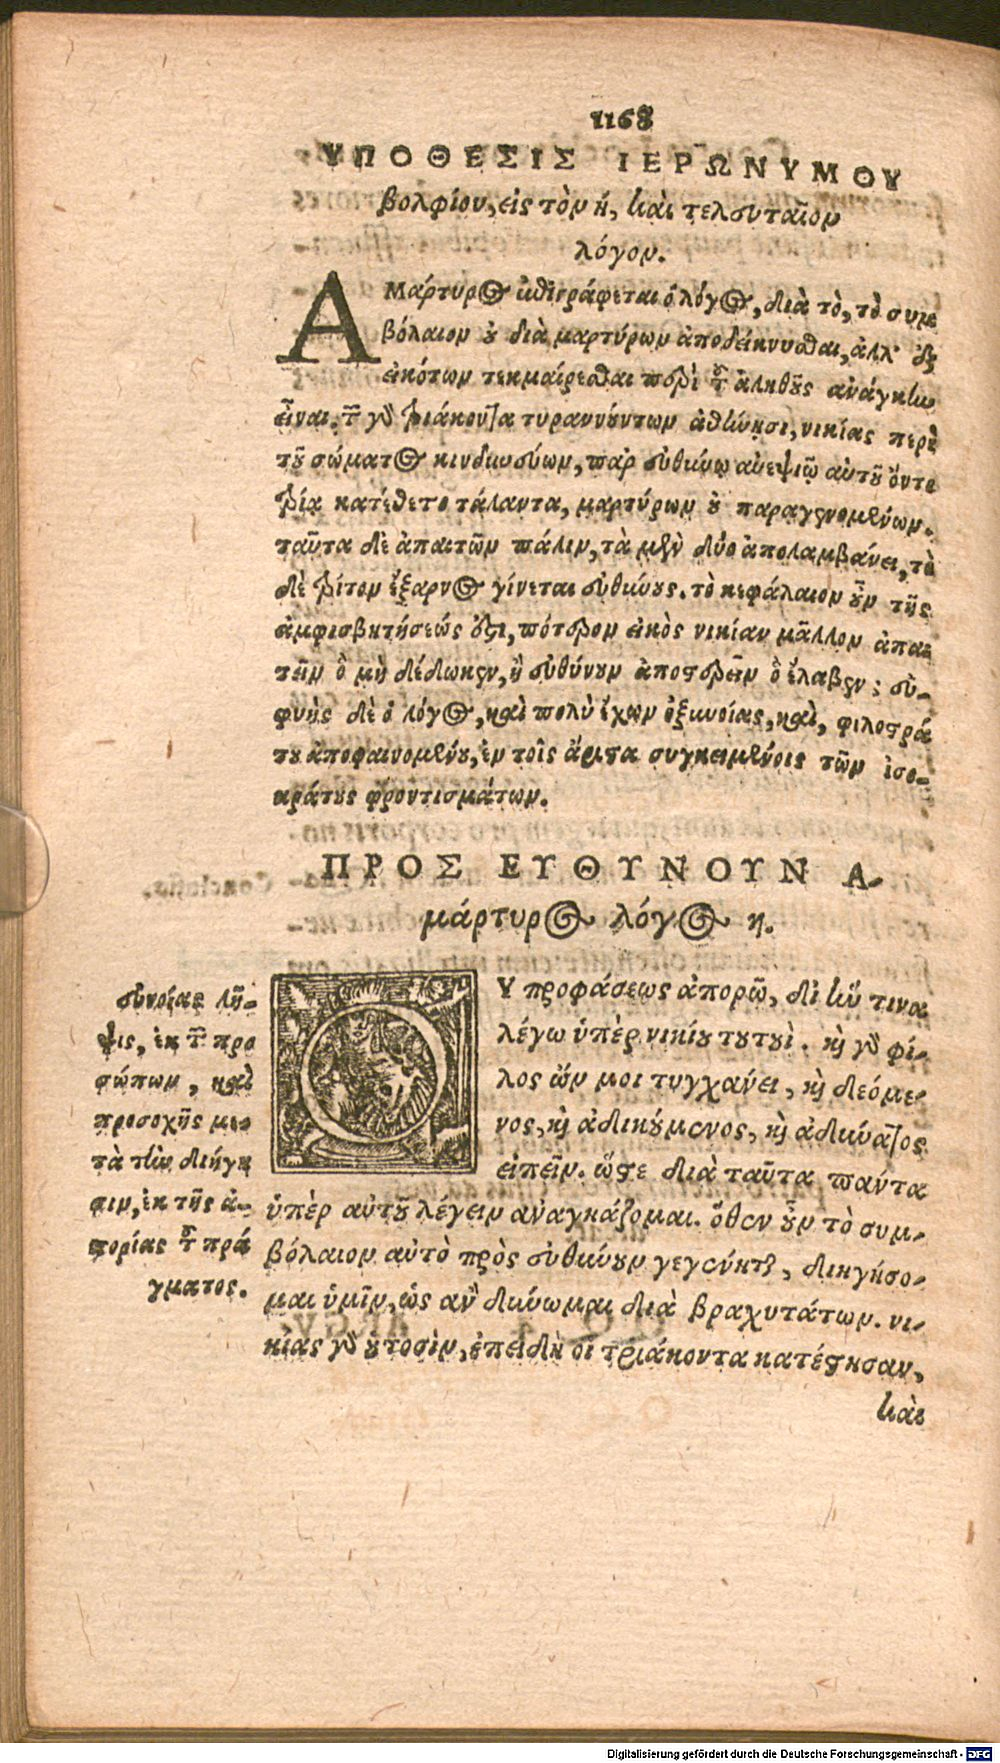 1168
ΥΠΟΘΕΣΙΣ ΙΕΡΩΝΥΜΟΥ
βολφίου, εἰς τὸν ή, καὶ τελευταῖον
λόγον.
ΑΜάρτυρος ἐπιγράφεται ὁ λόγος, διὰ τὸ, τὸ συμ
βόλαιον οὐ διὰ μαρτύρων ἀποδείκνυσθαι, ἀλλ' ἐξ
εἰκότων τεκμαίρεσθαι περὶ τοῦ ἀληθοῦς ἀνάγκην
εἶναι. τῶν γὰρ τριάκοντα τυραννούντων ἀθήνησι, νικίας περὶ
τοῦ σώματος κινδυνεύων, παρ' εὐθύνῳ ἀνεψιῷ αὐτοῦ ὄντι
τρία κατέθετο τάλαντα, μαρτύρων οὐ παραγενομένων.
ταῦτα δὲ ἀπαιτῶν πάλιν, τὰ μὲν δύο ἀπολαμβάνει, τὸ
δὲ τρίτον ἔξαρνος γίνεται εὐθύνους. τὸ κεφάλαιον οὖν τῆς
ἀμφισβητήσεώς ἐστι, πότερον εἰκὸς νικίαν μᾶλλον ἀπαι
τεῖν ὃ μὴ δέδωκεν, ἢ εὐθύνουν ἀποστερεῖν ὃ ἔλαβεν; εὐ-
φυὴς δὲ ὁ λόγος, καὶ πολὺ ἔχων ὀξυνοίας, καὶ, φιλοστρά
του ἀποφαινομένου, ἐν τοῖς ἄριστα συγκειμένοις τῶν ἰσο-
κράτους φροντισμάτων.
ΠΡΟΣ ΕΥΘΥΝΟΥΝ Α-
μάρτυρος λόγος κ.
ΟΥ προφάσεως ἀπορῶ, δι' ἥν τινα
λέγω ὑπὲρ νικίου τουτουὶ. καὶ γὰρ φί-
λος ὤν μοι τυγχάνει, καὶ δεόμε-
νος, καὶ ἀδικούμενος, καὶ ἀδύνατος
εἰπεῖν. ὥστε διὰ ταῦτα πάντα
ὑπὲρ αὐτοῦ λέγειν ἀναγκάζομαι. ὅθεν οὖν τὸ συμ-
βόλαιον αὐτὸ πρὸς εὐθύνουν γεγένηται, διηγήσο-
μαι ὑμῖν, ὡς ἂν δύνωμαι διὰ βραχυτάτων. νι-
κίας γὰρ οὑτοσὶν, ἐπειδὴ οἱ τριάκοντα κατέστησαν,
καὶ
εὐνοίας λῆ-
ψις, ἐκ τῶν προ
σώπων, καὶ
προσοχῆς με-
τὰ τὴν διήγη
σιν, ἐκ τῆς ἀ-
πορίας τοῦ πρά
γματος.
Digitalisierung gefördert durch die Deutsche Forschungsgemeinschaft - DFG